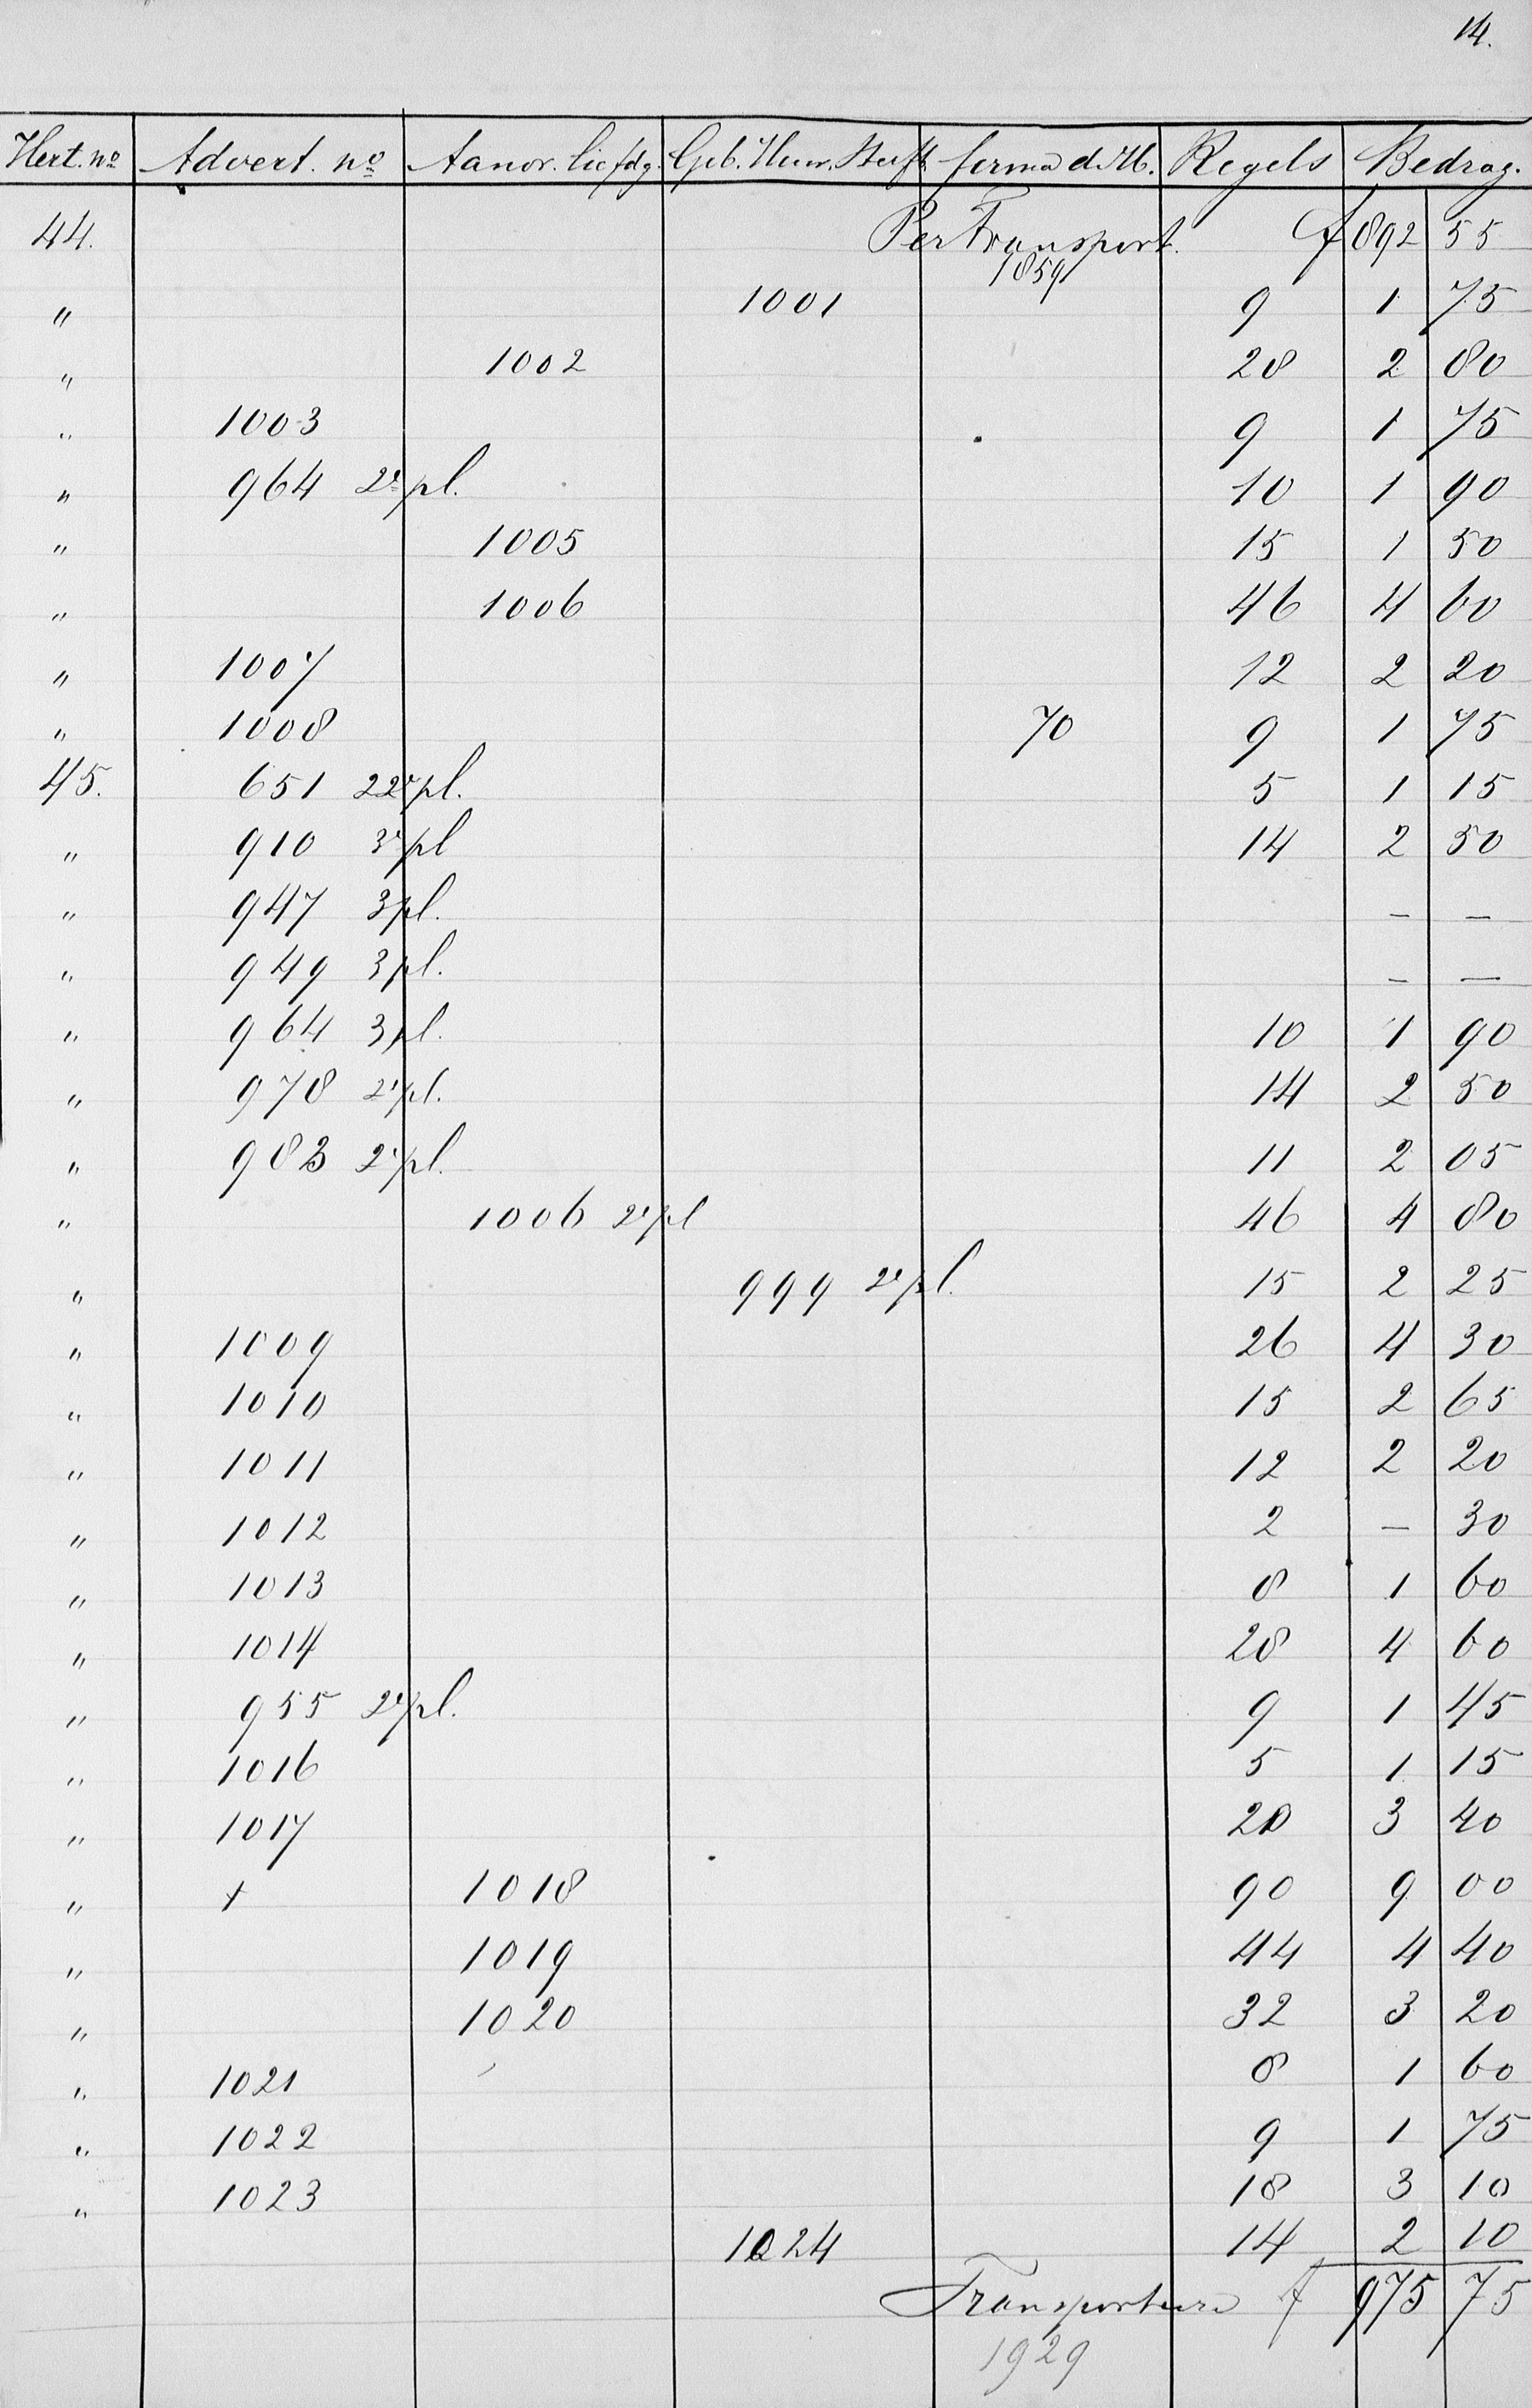 14.
Hert. no Advert. no Aanov. liefdg. Geb. Huw. Sterft firma d. M. Regels Bedrag.
44. Per Transport. f 892 55
1859
" 1001 9 1 75
" 1002 28 2 80
" 1003 9 1 75
" 964 2e pl. 10 1 90
" 1005 15 1 50
" 1006 46 4 60
" 1007 12 2 20
" 1008 70 9 1 75
45. 651 22e pl. 5 1 15
" 910 3e pl 14 2 50
" 947 3 pl. — —
" 949 3 pl. — —
" 964 3 pl. 10 1 90
" 978 2e pl. 14 2 50
" 983 2e pl. 11 2 05
" 1006 2e pl 46 4 80
" 999 2e pl. 15 2 25
" 1009 26 4 30
" 1010 15 2 65
" 1011 12 2 20
" 1012 2 — 30
" 1013 8 1 60
" 1014 28 4 60
" 955 2e pl. 9 1 45
" 1016 5 1 15
" 1017 20 3 40
" + 1018 90 9 00
" 1019 44 4 40
" 1020 32 3 20
" 1021 8 1 60
" 1022 9 1 75
" 1023 18 3 10
1024 14 2 10
Transporteere f 975 75
1929